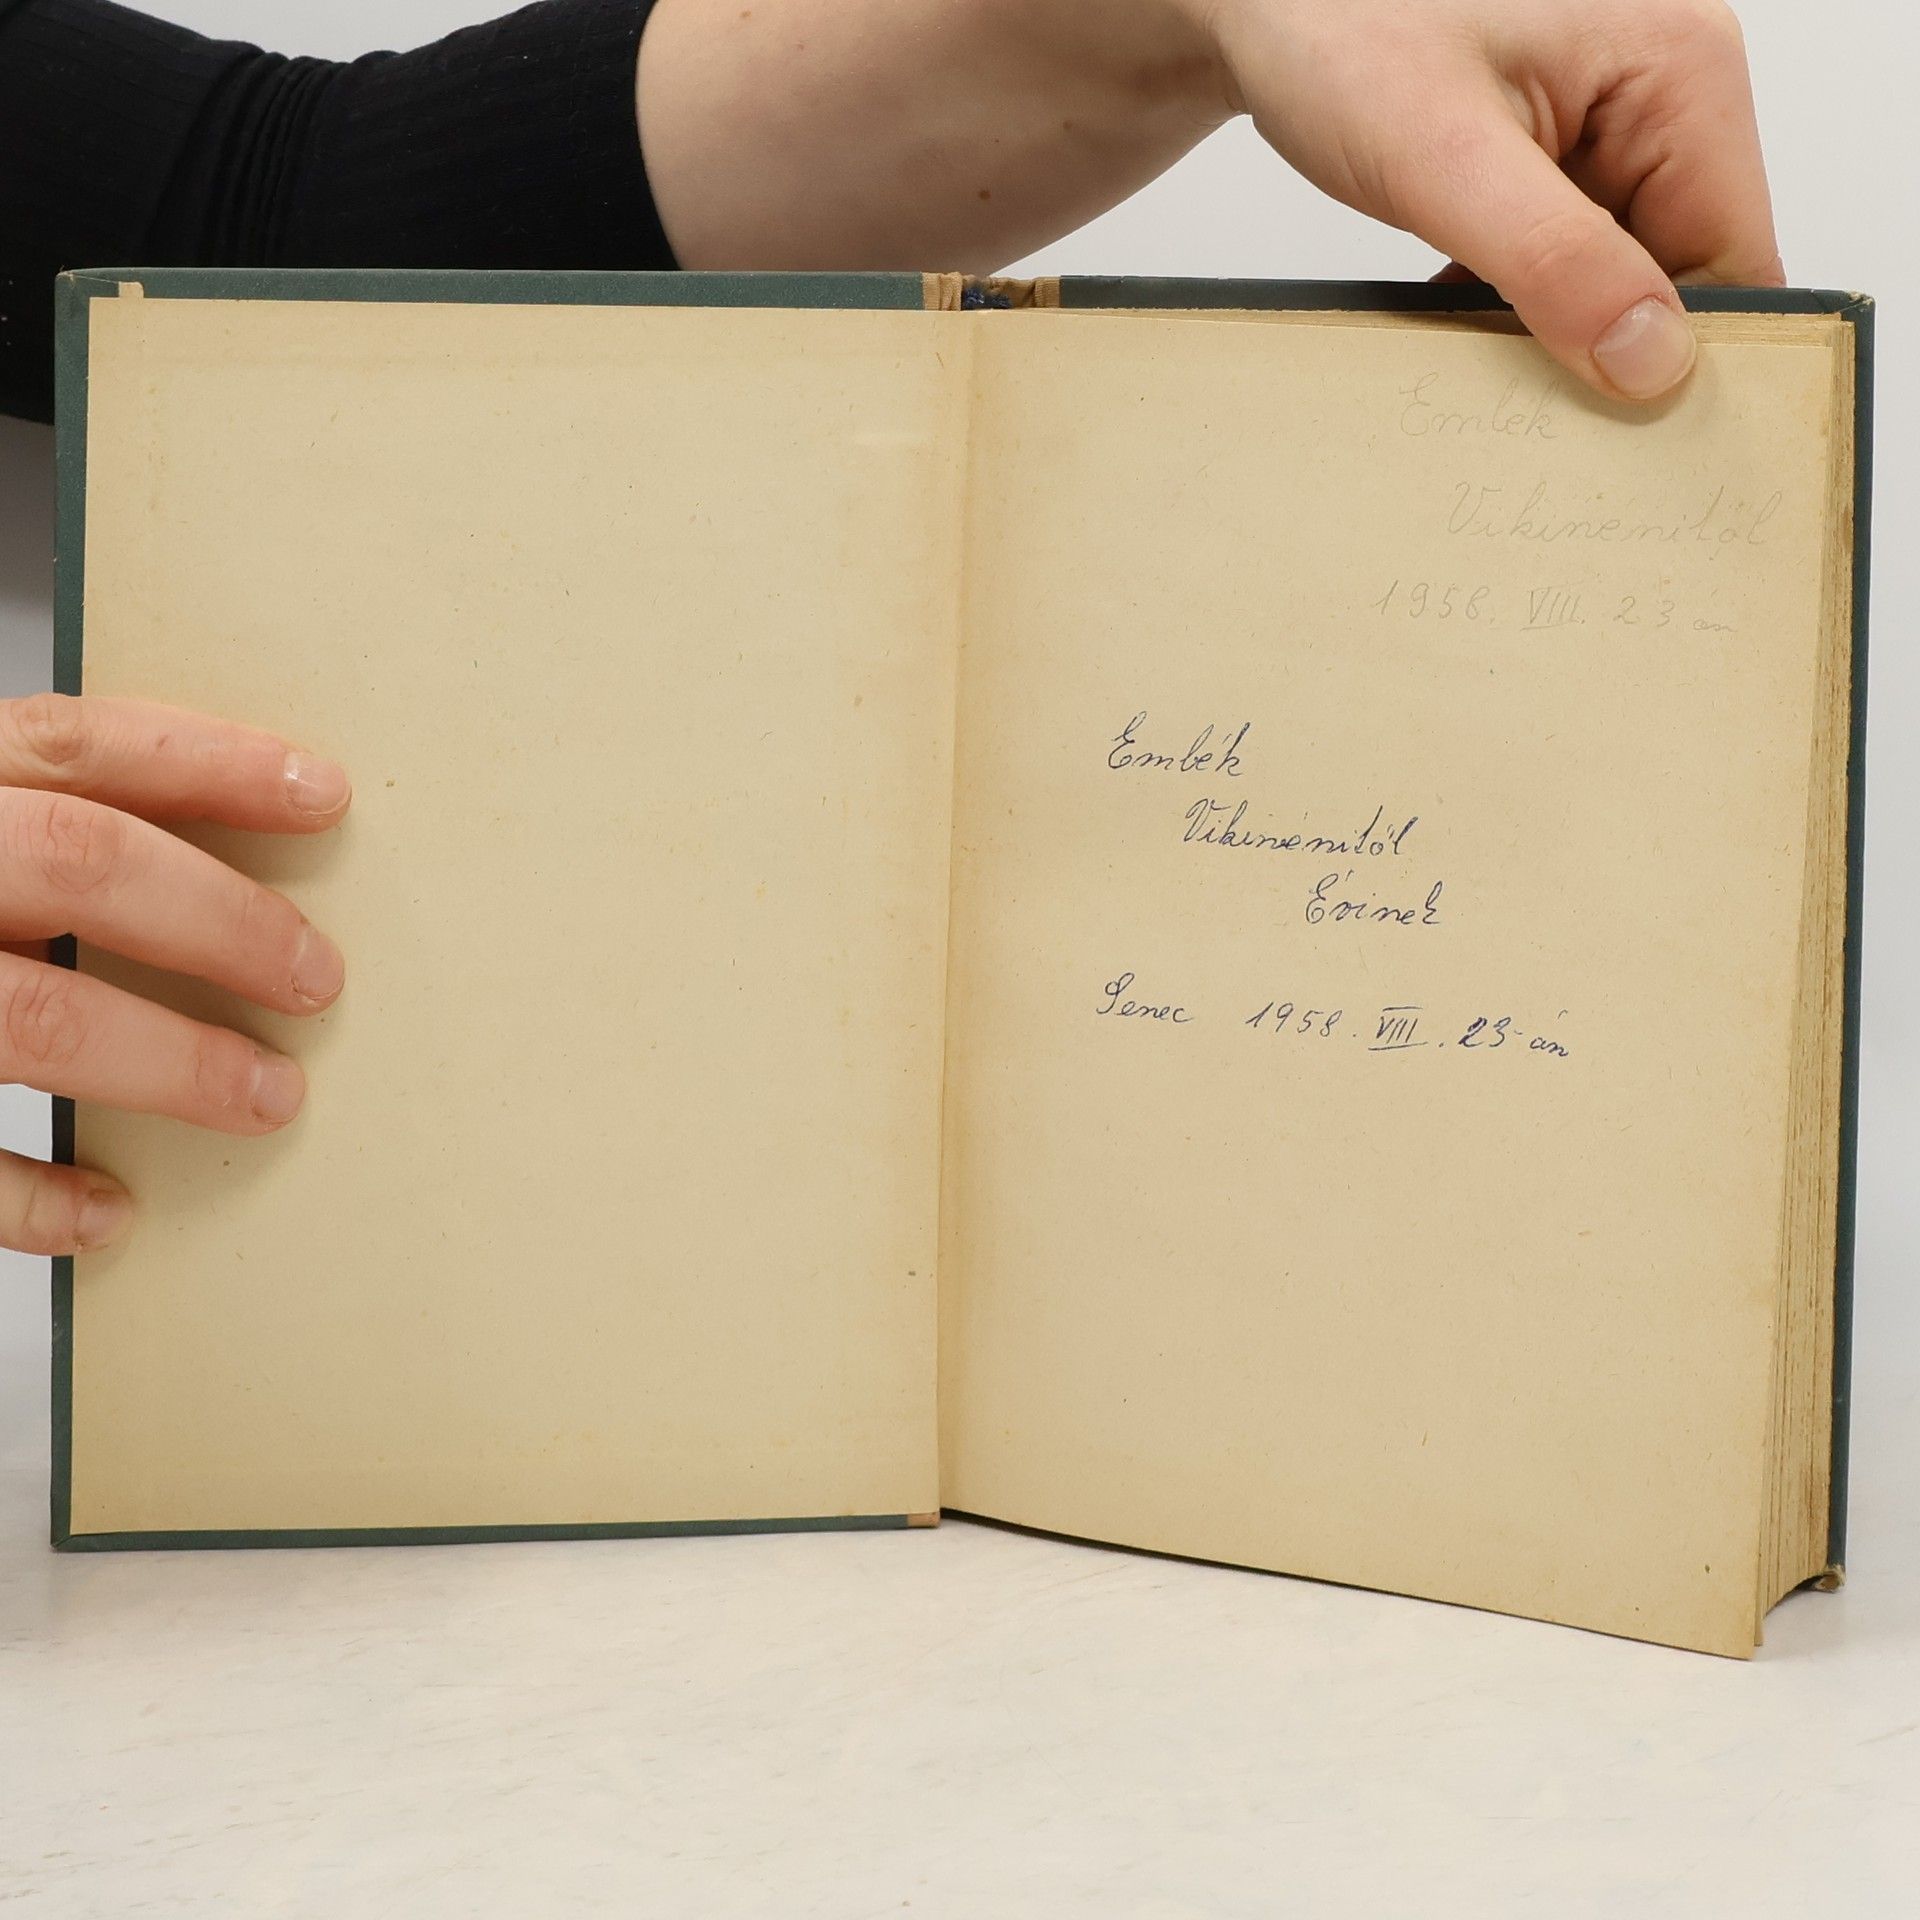 Emlék
Vikinénitől
1958. VIII. 23 án
Emlék
Vikinénitől
Évinek
Senec 1958. VIII. 23-án